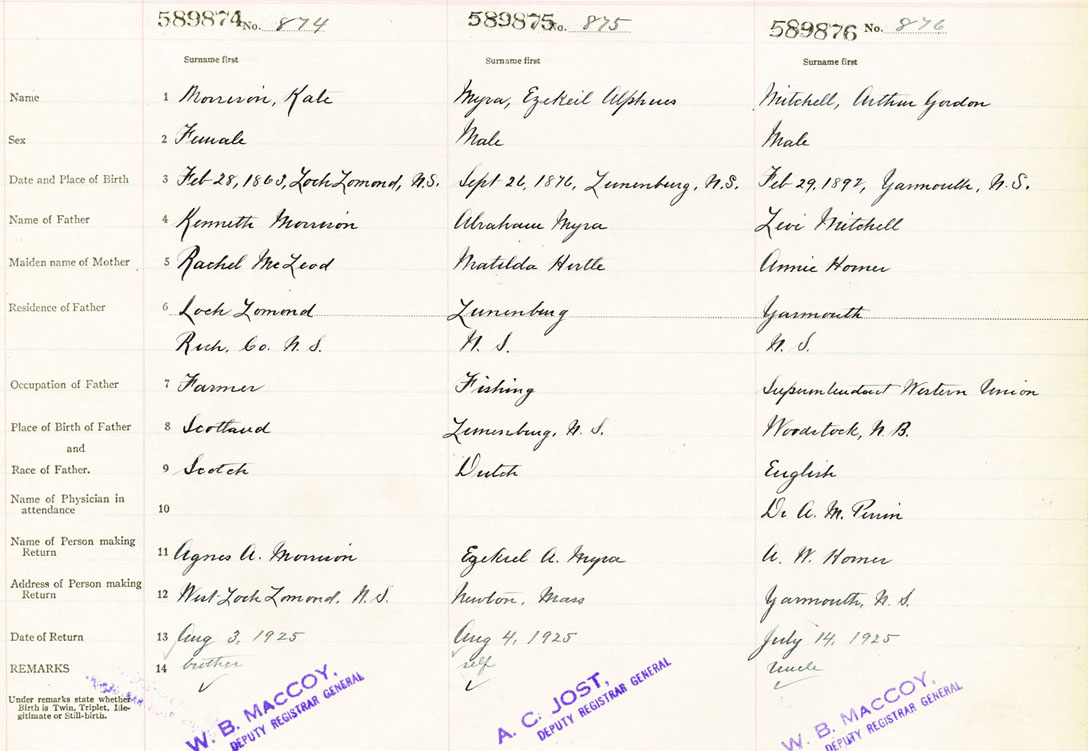 589874 No. 874 589875 No. 875 589876 No. 876
Surname first Surname first Surname first
Name 1 Morrison, Kate Myra, Ezekeil Alpheus Mitchell, Arthur Gordon
Sex 2 Female Male Male
Date and Place of Birth 3 Feb 28, 1863, Loch Lomond, N.S. Sept 26, 1876, Lunenburg, N.S. Feb 29, 1892, Yarmouth, N.S.
Name of Father 4 Kenneth Morrison Abraham Myra Levi Mitchell
Maiden name of Mother 5 Rachel McLeod Matilda Hirtle Annie Horner
Residence of Father 6 Loch Lomond Lunenburg Yarmouth
Rich. Co. N.S. N. S. N. S.
Occupation of Father 7 Farmer Fishing Superintendant Western Union
Place of Birth of Father 8 Scotland Lunenburg, N. S. Woodstock, N.B.
and
Race of Father. 9 Scotch Dutch English
Name of Physician in
attendance 10 Dr A. M. Perrin
Name of Person making
Return 11 Agnes A. Morrison Ezekiel A. Myra A. W. Horner
Address of Person making
Return 12 West Loch Lomond, N.S. Newton, Mass Yarmouth, N.S.
Date of Return 13 Aug 3, 1925 Aug 4, 1925 July 14, 1925
REMARKS 14 brother self uncle
Under remarks state whether
Birth is Twin, Triplet, Ille-
gitimate or Still-birth.
W. B. MACCOY, A. C. JOST, W. B. MACCOY,
DEPUTY REGISTRAR GENERAL DEPUTY REGISTRAR GENERAL DEPUTY REGISTRAR GENERAL